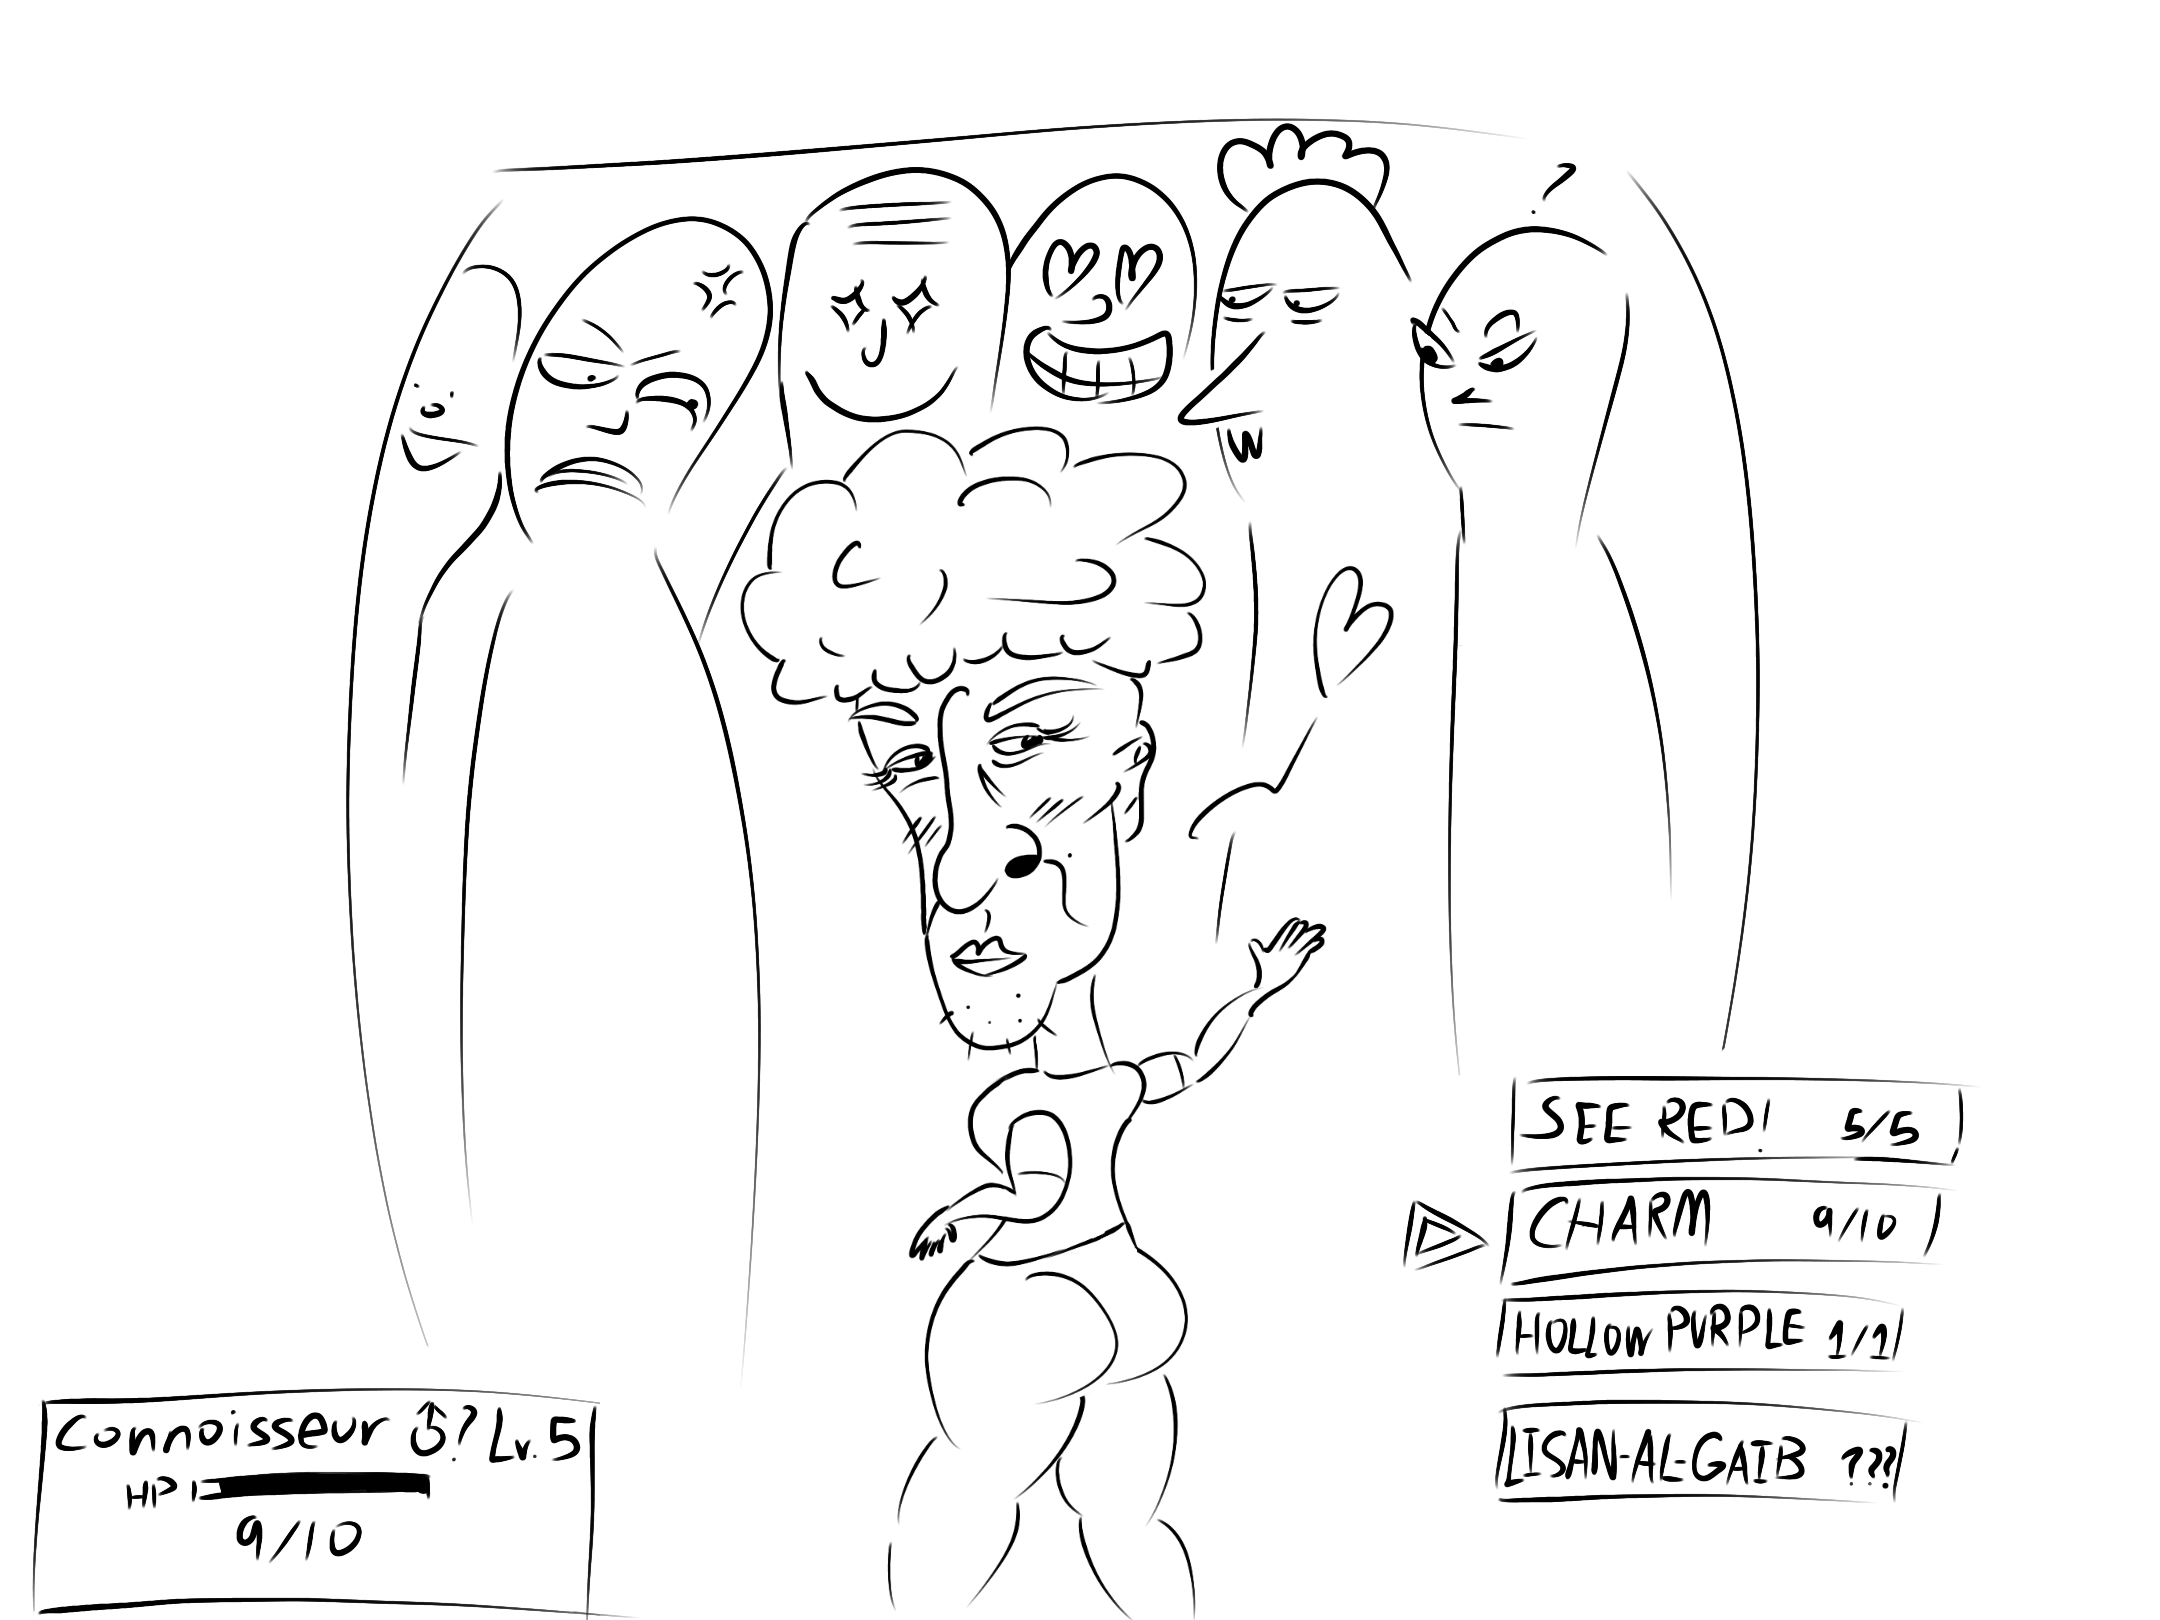 ?
SEE RED! 5/5
CHARM 9/10
HOLLOW PURPLE 1/1
LISAN-AL-GAIB ???
Connoisseur ♂? Lv.5
HP
9/10